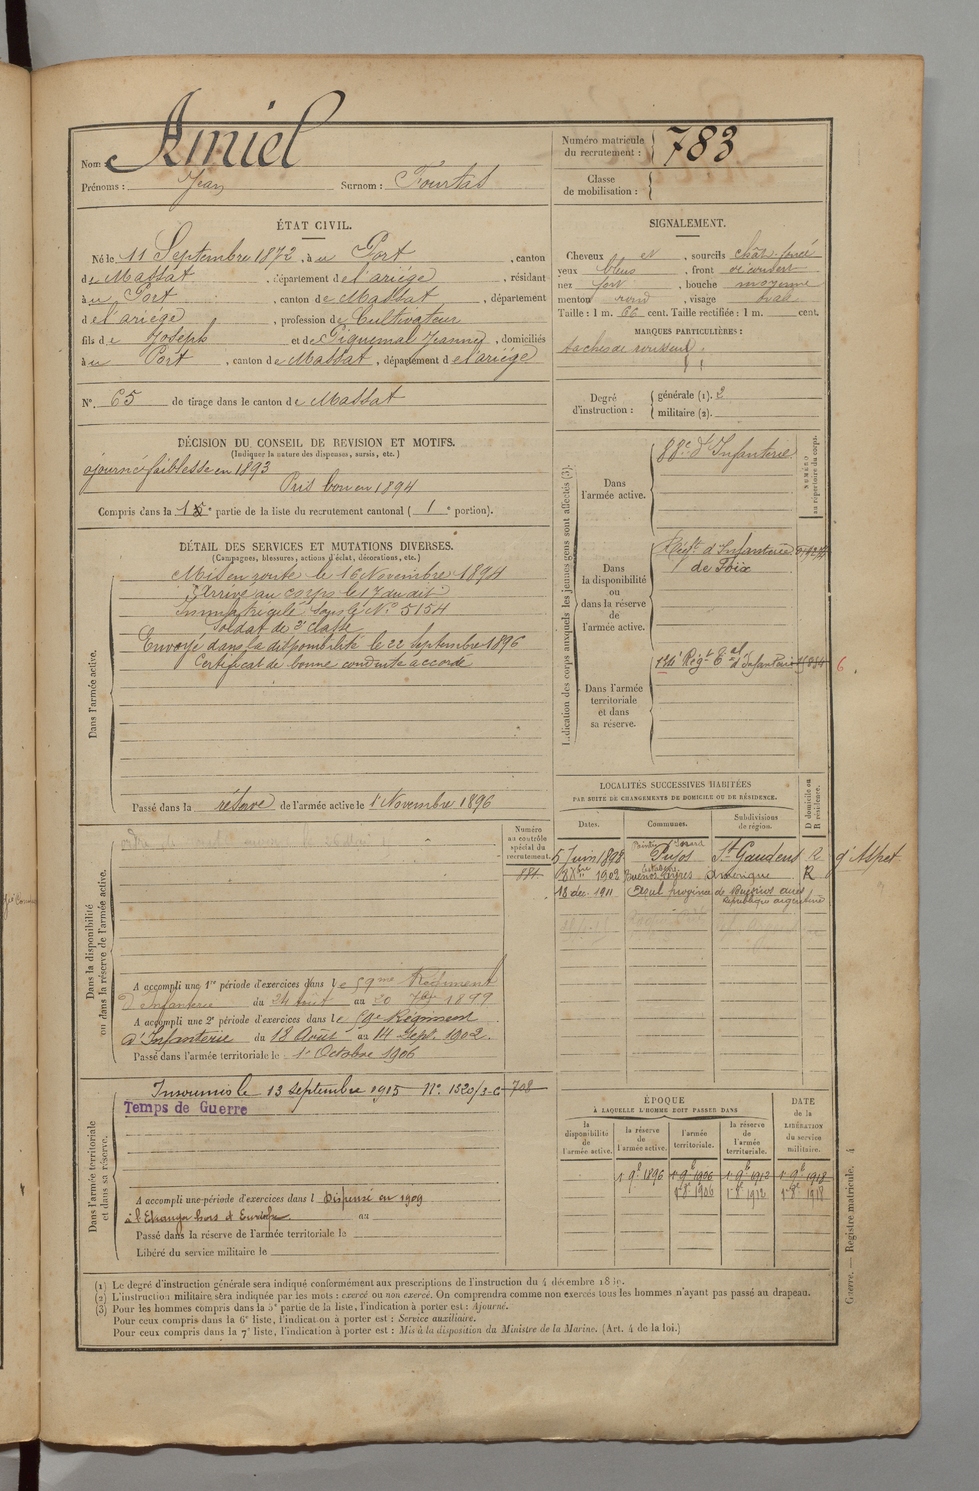 Nom : Amiel
Prénoms : Jean Surnom : Fourtas
Numéro matricule du recrutement : 783
Classe de mobilisation :
ÉTAT CIVIL.
Né le 11 Septembre 1872, à u Port, canton
de Massat, département de l'ariége, résidant
à u Port, canton de Massat, département
d el'ariége, profession de Cultivateur
fils d e Joseph et de Piquemal Jeanne, domiciliés
à u Port, canton de Massat, département d el'ariége
N° 65 de tirage dans le canton de Massat
SIGNALEMENT.
Cheveux et, sourcils chât. foncé
yeux bleus, front découvert
nez fort, bouche moyenne
menton rond, visage oval
Taille : 1 m. 66 cent. Taille rectifiée : 1 m. cent.
MARQUES PARTICULIÈRES :
taches de rousseur.
Degré d'instruction : générale (1). 2
militaire (2).
DÉCISION DU CONSEIL DE REVISION ET MOTIFS.
(Indiquer la nature des dispenses, sursis, etc.)
ajourné faiblesse en 1893
Pris bon en 1894
Compris dans la 1e partie de la liste du recrutement cantonal ( 1e portion).
DÉTAIL DES SERVICES ET MUTATIONS DIVERSES.
(Campagnes, blessures, actions d'éclat, décorations, etc.)
Dans l'armée active.
Mis en route le 16 Novembre 1894
Arrivé au corps le 17 du dit
Immatriculé sous le N° 5154
Soldat de 2e classe
Envoyé dans la disponibilité le 22 Septembre 1896
Certificat de bonne conduite accordé
Passé dans la réserve de l'armée active le 1 Novembre 1896
Indication des corps auxquels les jeunes gens sont affectés (3).
NUMÉRO au répertoire du corps.
Dans l'armée active.
88e d'Infanterie
Dans la disponibilité ou dans la réserve de l'armée active.
Régt d'Infanterie
de Foix
Dans l'armée territoriale et dans sa réserve.
Régt Tal d'Infanterie
6
LOCALITÉS SUCCESSIVES HABITÉES
PAR SUITE DE CHANGEMENTS DE DOMICILE OU DE RÉSIDENCE.
Dates. Communes. Subdivisions de région. D domicile ou R résidence.
5 Juin 1898 Pujos St Gaudens R d'Aspet
1902 Buenos Ayres Amérique R
18 déc. 1911 de Buenos aires
République argentine
Dans la disponibilité ou dans la réserve de l'armée active.
Numéro au contrôle spécial du recrutement.
184
A accompli une 1re période d'exercices dans le 59me Régiment
d'Infanterie du 24 août au 20 7bre 1899
A accompli une 2e période d'exercices dans le 59e Régiment
d'Infanterie du 18 Août au 14 Sept. 1902.
Passé dans l'armée territoriale le 1er Octobre 1906
Dans l'armée territoriale et dans sa réserve.
Insoumis le 13 septembre 1915 N° 1520/3-G 708
Temps de Guerre
A accompli une période d'exercices dans l Dispensé en 1909
à l'Etranger hors d'Europe au
Passé dans la réserve de l'armée territoriale le
Libéré du service militaire le
ÉPOQUE
À LAQUELLE L'HOMME DOIT PASSER DANS
la disponibilité de l'armée active. la réserve de l'armée active. l'armée territoriale. la réserve de l'armée territoriale.
DATE de la LIBÉRATION du service militaire.
1 9b 1896 1 9b 1906 1 9b 1912 1 9b 1918
1 8b 1906 1 8b 1912 1 8b 1918
(1) Le degré d'instruction générale sera indiqué conformément aux prescriptions de l'instruction du 4 décembre
(2) L'instruction militaire sera indiquée par les mots : exercé ou non exercé. On comprendra comme non exercés tous les hommes n'ayant pas passé au drapeau.
(3) Pour les hommes compris dans la 5e partie de la liste, l'indication à porter est : Ajourné.
Pour ceux compris dans la 6e liste, l'indication à porter est : Service auxiliaire.
Pour ceux compris dans la 7e liste, l'indication à porter est : Mis à la disposition du Ministre de la Marine. (Art. 4 de la loi.)
Guerre. — Registre matricule. 4